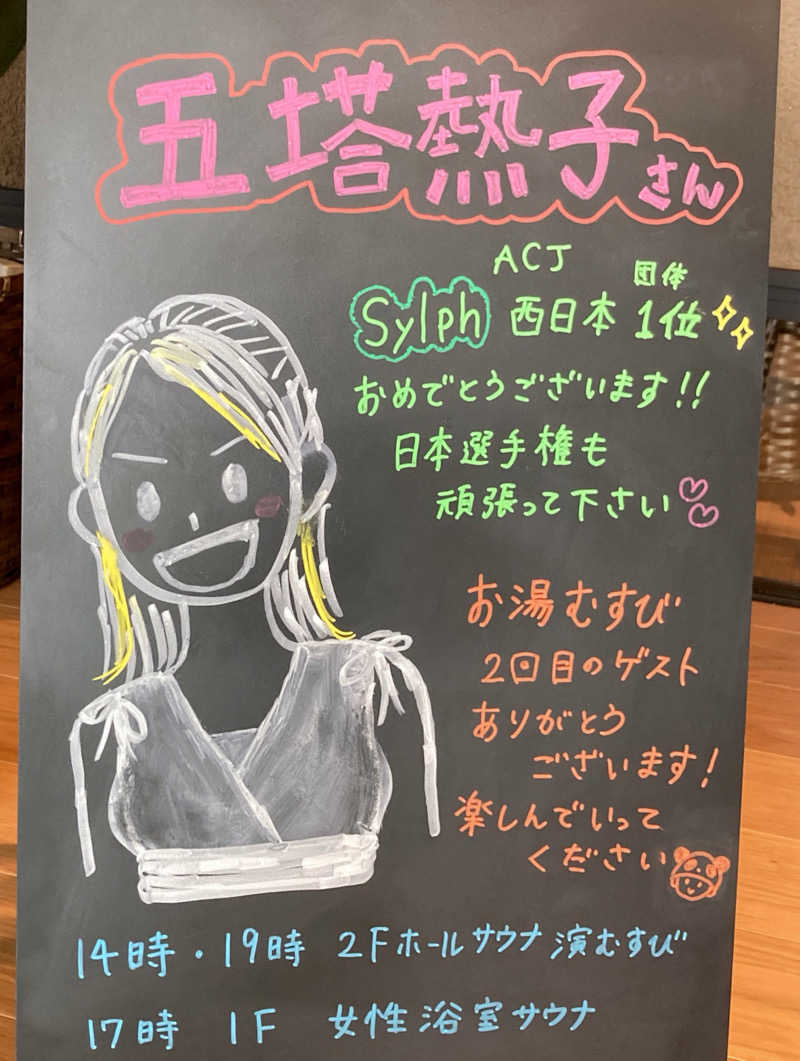 五塔熱子さん
ACJ 団体
Sylph 西日本 1位
おめでとうございます!!
日本選手権も
頑張って下さい
お湯むすび
2回目のゲスト
ありがとう
ございます!
楽しんでいって
ください
14時・19時 2Fホールサウナ 演むすび
17時 1F 女性浴室サウナ